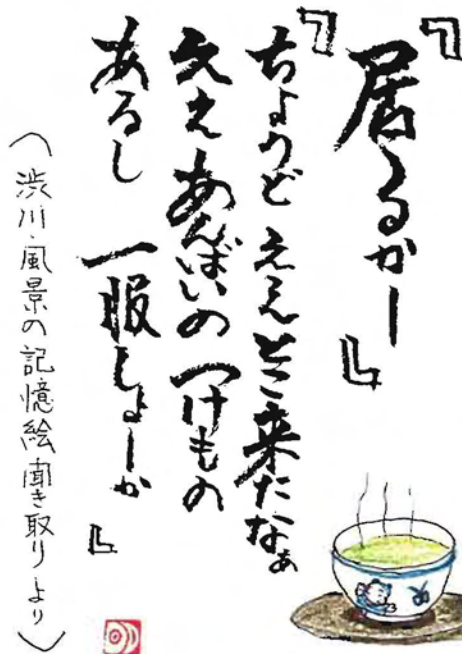 『居るかー』
『ちょうど ええとこ来たなぁ
ええ あんばいの つけもの
あるし 一服しょーか』
（渋川・風景の記憶絵 聞き取りより）